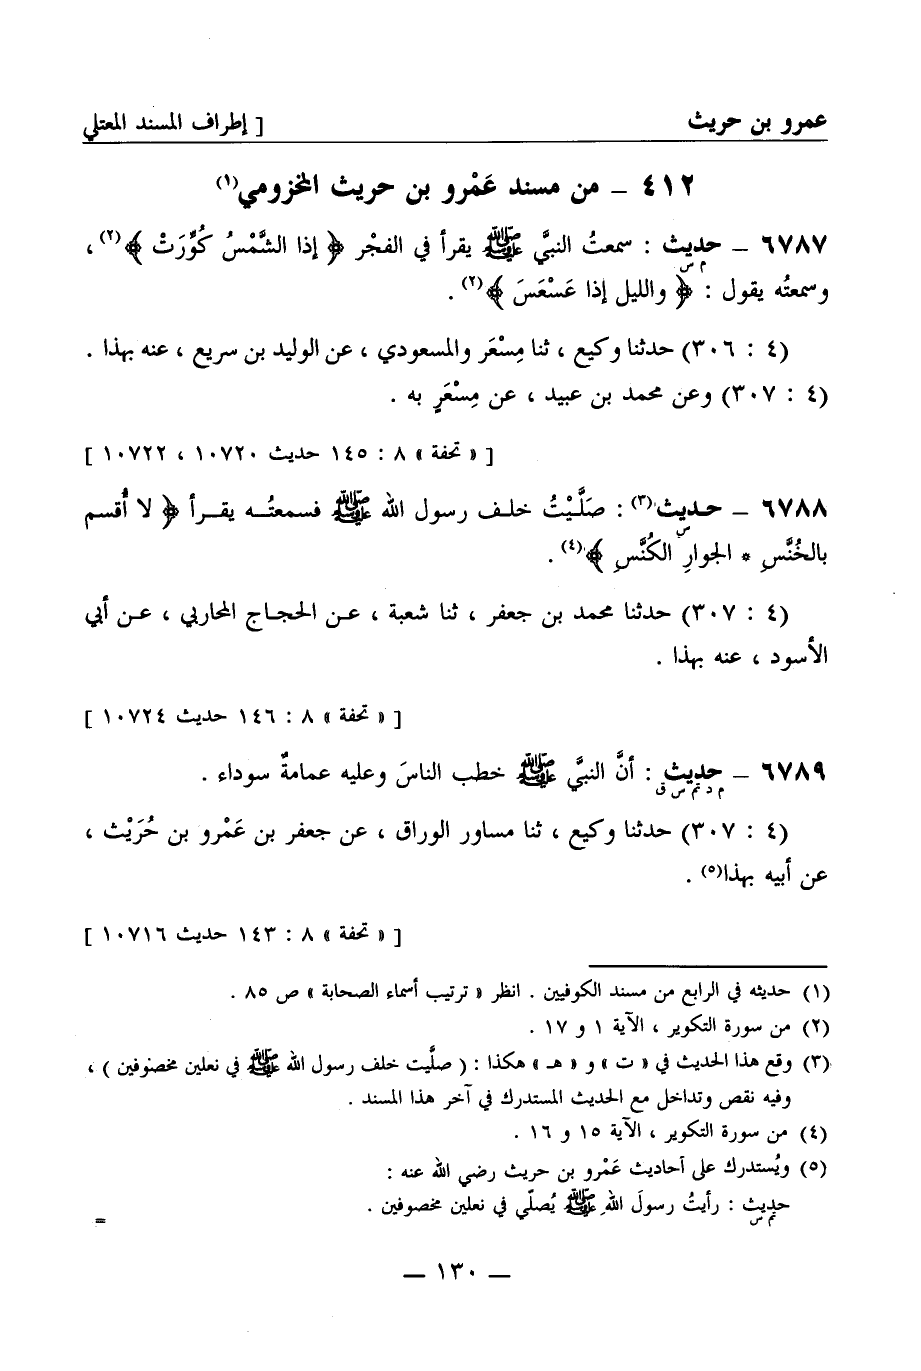 عمرو بن حريث [ إطراف المسند المعتلي
٤١٢ – من مسند عَمْرو بن حريث المخزومي(١)
٦٧٨٧ – حديث : سمعتُ النبيَّ ﷺ يقرأ في الفجْر ﴿ إذا الشَّمْسُ كُوِّرَتْ ﴾(٢) ،
م س
وسمعتُه يقول : ﴿ والليل إذا عَسْعَسَ ﴾(٢) .
(٤ : ٣٠٦) حدثنا وكيع ، ثنا مِسْعَر والمسعودي ، عن الوليد بن سريع ، عنه بهذا .
(٤ : ٣٠٧) وعن محمد بن عبيد ، عن مِسْعَرٍ به .
[ « تحفة » ٨ : ١٤٥ حديث ١٠٧٢٠ ، ١٠٧٢٢ ]
٦٧٨٨ – حديث(٣) : صَلَّيْتُ خلف رسول الله ﷺ فسمعتُه يقرأ ﴿ لا أُقسم
س
بالخُنَّسِ * الجوارِ الكُنَّسِ ﴾(٤) .
(٤ : ٣٠٧) حدثنا محمد بن جعفر ، ثنا شعبة ، عن الحجاج المحاربي ، عن أبي
الأسود ، عنه بهذا .
[ « تحفة » ٨ : ١٤٦ حديث ١٠٧٢٤ ]
٦٧٨٩ – حديث : أنَّ النبيَّ ﷺ خطب الناسَ وعليه عمامةٌ سوداء .
م د تم س ق
(٤ : ٣٠٧) حدثنا وكيع ، ثنا مساور الوراق ، عن جعفر بن عَمْرو بن حُرَيْث ،
عن أبيه بهذا(٥) .
[ « تحفة » ٨ : ١٤٣ حديث ١٠٧١٦ ]
(١) حديثه في الرابع من مسند الكوفيين . انظر « ترتيب أسماء الصحابة » ص ٨٥ .
(٢) من سورة التكوير ، الآية ١ و ١٧ .
(٣) وقع هذا الحديث في « ت » و « هـ » هكذا : ( صلَّيت خلف رسول الله ﷺ في نعلين مخصنوفين ) ،
وفيه نقص وتداخل مع الحديث المستدرك في آخر هذا المسند .
(٤) من سورة التكوير ، الآية ١٥ و ١٦ .
(٥) ويُستدرك على أحاديث عَمْرو بن حريث رضي الله عنه :
حديث : رأيتُ رسولَ اللهِ ﷺ يُصلّي في نعلين مخصوفين .
تم س
=
– ١٣٠ –